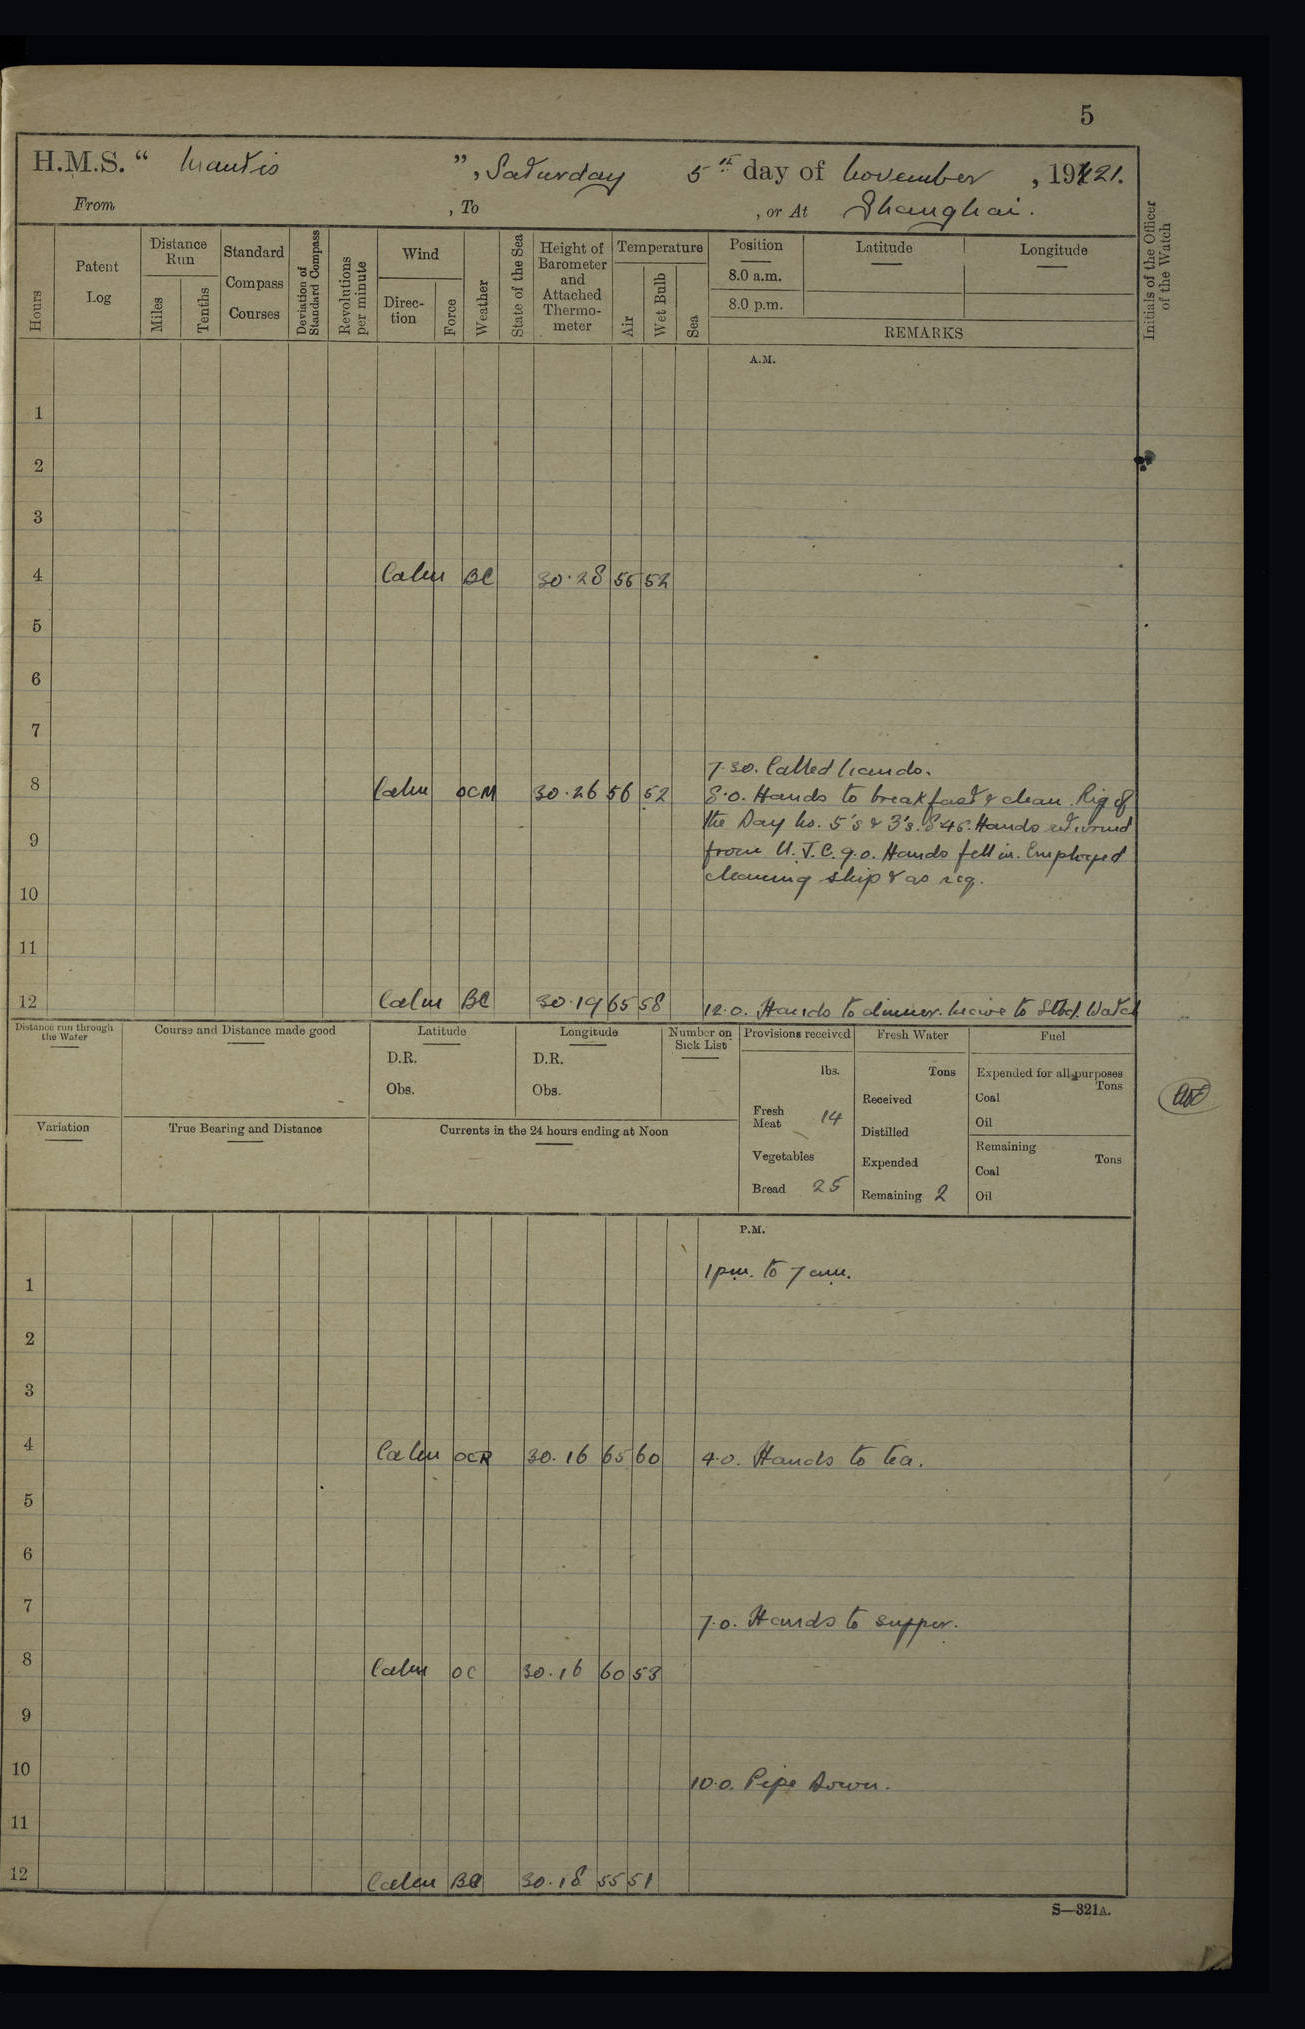 5
H.M.S. “ Mantis ”, Saturday 5th day of November, 1921.
From , To , or At Shanghai.
Hours
Patent Log
Distance Run
Miles
Tenths
Standard Compass Courses
Deviation of Standard Compass
Revolutions per minute
Wind
Direc-tion
Force
Weather
State of the Sea
Height of Barometer and Attached Thermo-meter
Temperature
Air
Wet Bulb
Sea
Position
8.0 a.m.
8.0 p.m.
Latitude
Longitude
REMARKS
Initials of the Officer of the Watch
A.M.
1
2
3
4 Calm BC 30.28 55 52
5
6
7
7.30. Called hands.
8 Calm OCM 30.26 56 52 8.0. Hands to breakfast & clean. Rig of
the Day No. 5's & 3's. 8.45. Hands returned
9
from U.J.C. 9.0. Hands fell in. Employed
cleaning ship & as req.
10
11
12 Calm BC 30.19 65 58 12.0. Hands to dinner. Leave to Stbd. Watch
Distance run through the Water
Course and Distance made good
Latitude
D.R.
Obs.
Longitude
D.R.
Obs.
Number on Sick List
Provisions received
lbs.
Fresh Meat 14
Vegetables
Bread 25
Fresh Water
Tons
Received
Distilled
Expended
Remaining 2
Fuel
Expended for all purposes
Tons
Coal
Oil
Remaining
Tons
Coal
Oil
Variation
True Bearing and Distance
Currents in the 24 hours ending at Noon
P.M.
1pm. to 7am.
1
2
3
4 Calm OCR 30.16 65 60 4.0. Hands to tea.
5
6
7
7.0. Hands to supper.
8 Calm OC 30.16 60 53
9
10
10.0. Pipe Down.
11
12 Calm BC 30.18 55 51
S—321A.